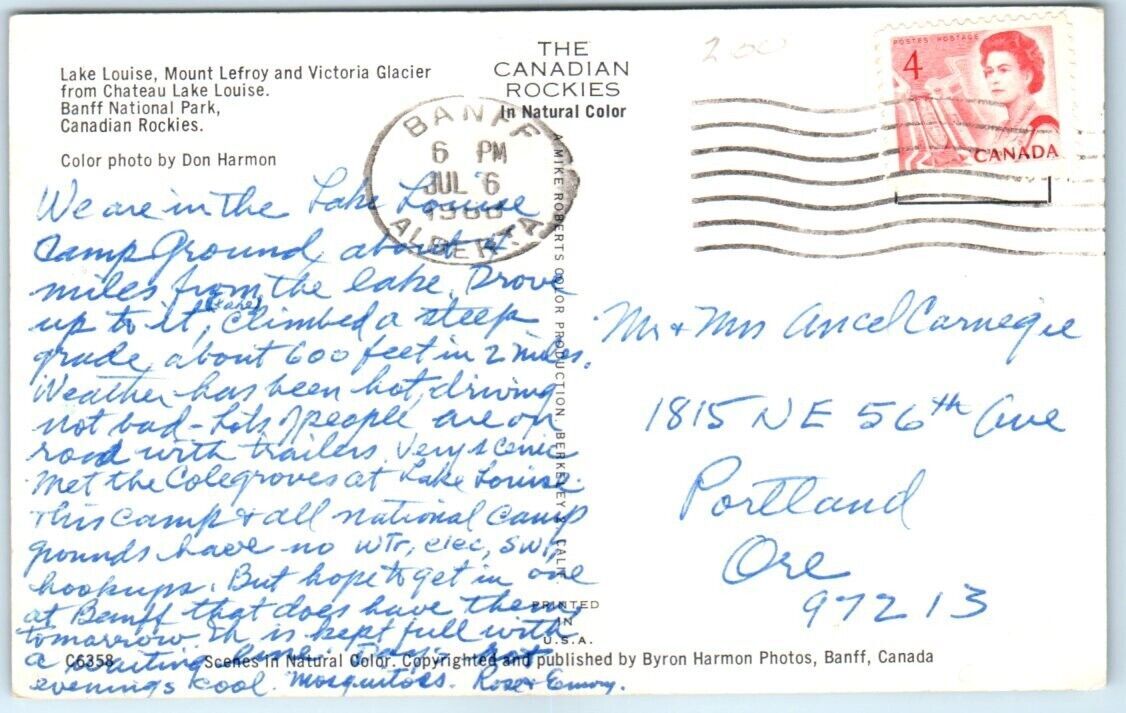 Lake Louise, Mount Lefroy and Victoria Glacier
from Chateau Lake Louise.
Banff National Park,
Canadian Rockies.
Color photo by Don Harmon
THE
CANADIAN
ROCKIES
In Natural Color
200
BANFF
6 PM
JUL 6
ALBERTA
POSTES POSTAGE
4
CANADA
We are in the Lake Louise
Camp Ground about 4
miles from the lake. Drove
up to it, (lake) climbed a steep
grade about 600 feet in 2 miles.
Weather has been hot, driving
not bad - Lots of people are on
road with trailers. Very scenic
Met the Colegroves at Lake Louise.
This camp & all national camp
grounds have no wtr, elec, swr,
hookups. But hope to get in one
at Banff that does have them
tomarrow. It is kept full with
a waiting line. Days hot
evenings kool. Mosquitoes. Rose & Emory.
Mr & Mrs Ancel Carnegie
1815 NE 56th Ave
Portland
Ore
97213
A MIKE ROBERTS COLOR PRODUCTION, BERKELEY 2, CALIF.
PRINTED
IN
U.S.A.
C6358
Scenes in Natural Color. Copyrighted and published by Byron Harmon Photos, Banff, Canada